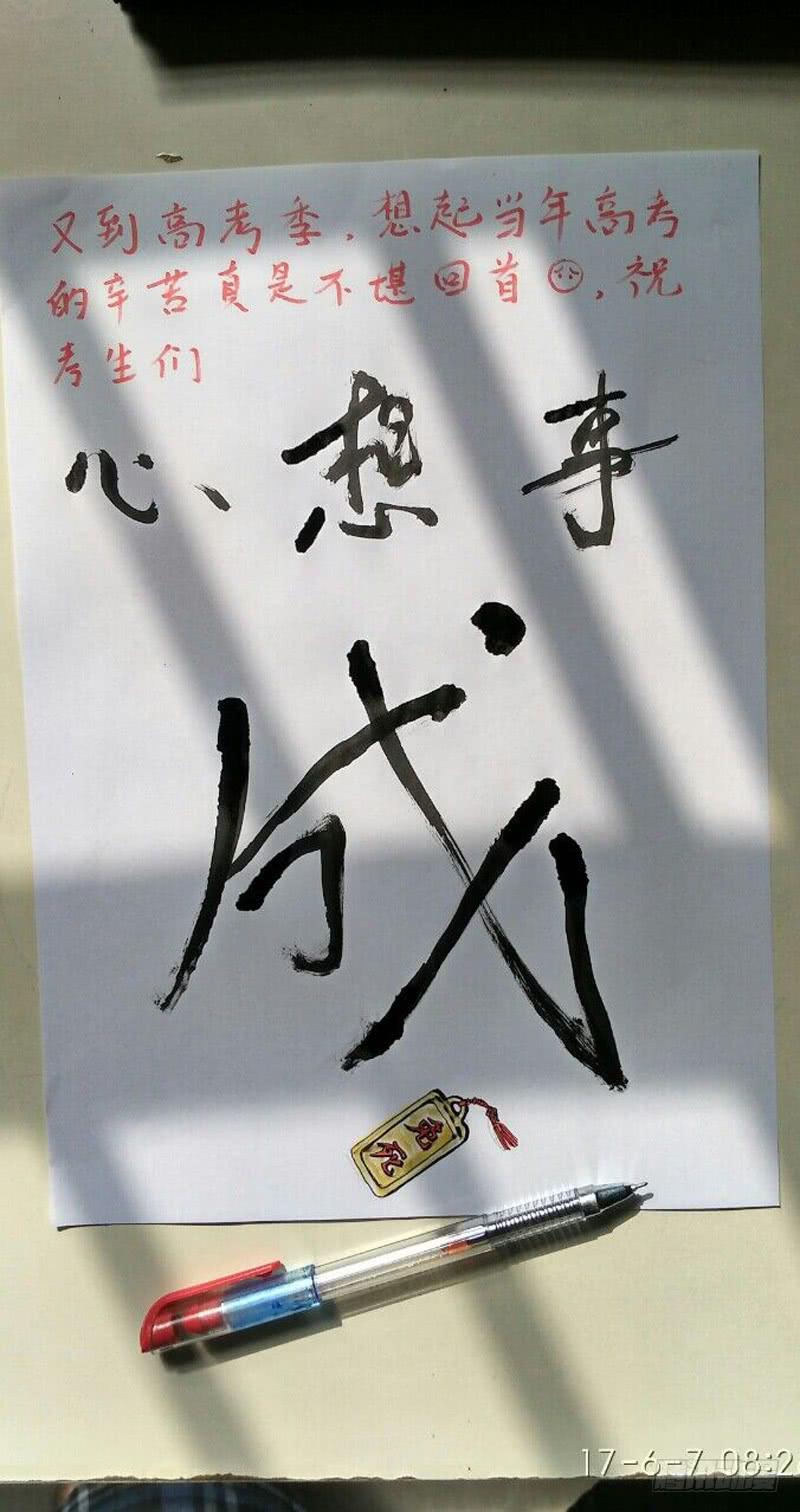 又到高考季,想起当年高考
的辛苦真是不堪回首,祝
考生们
心想事
成
免死
17-6-7 08:2